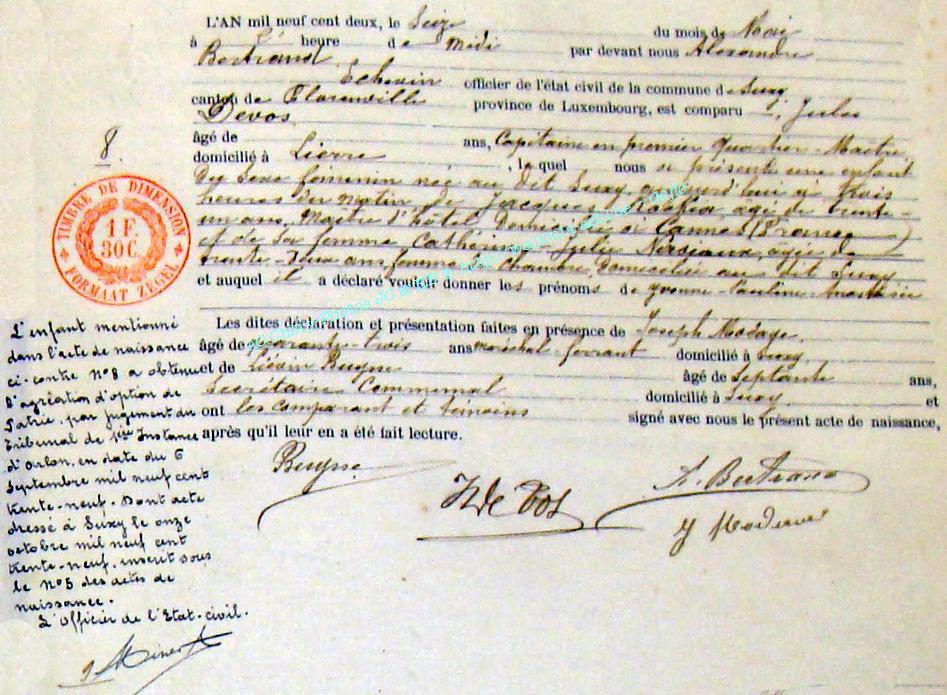 L'AN mil neuf cent deux, le Seize du mois de Mai
à heure de Midi par devant nous Alexandre
Bertrand Echevin officier de l'état civil de la commune de Suxy,
canton de Florenville province de Luxembourg, est comparu Jules
Devos,
âgé de ans, Capitaine en premier Quartier-Maitre,
domicilié à Lierre, lequel nous a présenté une enfant
Du Sexe feminin née au dit Suxy aujourd'hui à trois
heures du matin de Jacques âgé de trente-
un ans, Maitre d'hôtel, Domicilié à Cannes (France)
et de Sa femme Catherine Julie âgée de
trente-Deux ans, femme de Chambre, Domiciliée au dit Suxy
et auquel il a déclaré vouloir donner les prénoms de Yvonne-Pauline-Anastasie
Les dites déclaration et présentation faites en présence de Joseph
âgé de quarante-trois ans maréchal-ferrant domicilié à Suxy,
et de Liévin Buysse âgé de Septante ans,
Secrétaire Communal domicilié à Suxy, et
ont les comparant et témoins signé avec nous le présent acte de naissance,
après qu'il leur en a été fait lecture.
Buysse
A. Bertrand
JDe Vos
8.
TIMBRE DE DIMENSION
1 F.
30C.
FORMAAT ZEGEL
L'enfant mentionné
dans l'acte de naissance
ci-contre N°8 a obtenu
l'agréation d'option de
Patrie, par jugement du
Tribunal de 1ère Instance
d'Arlon, en date du 6
Septembre mil neuf cent
trente-neuf. Dont acte
dressé à Suxy le onze
octobre mil neuf cent
trente-neuf, inscrit sous
le N°5 des actes de
naissance.
L'Officier de l'Etat-civil.